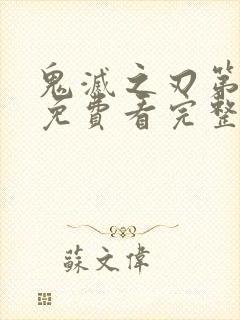 鬼滅之刃第
免費看完整
蘇文偉